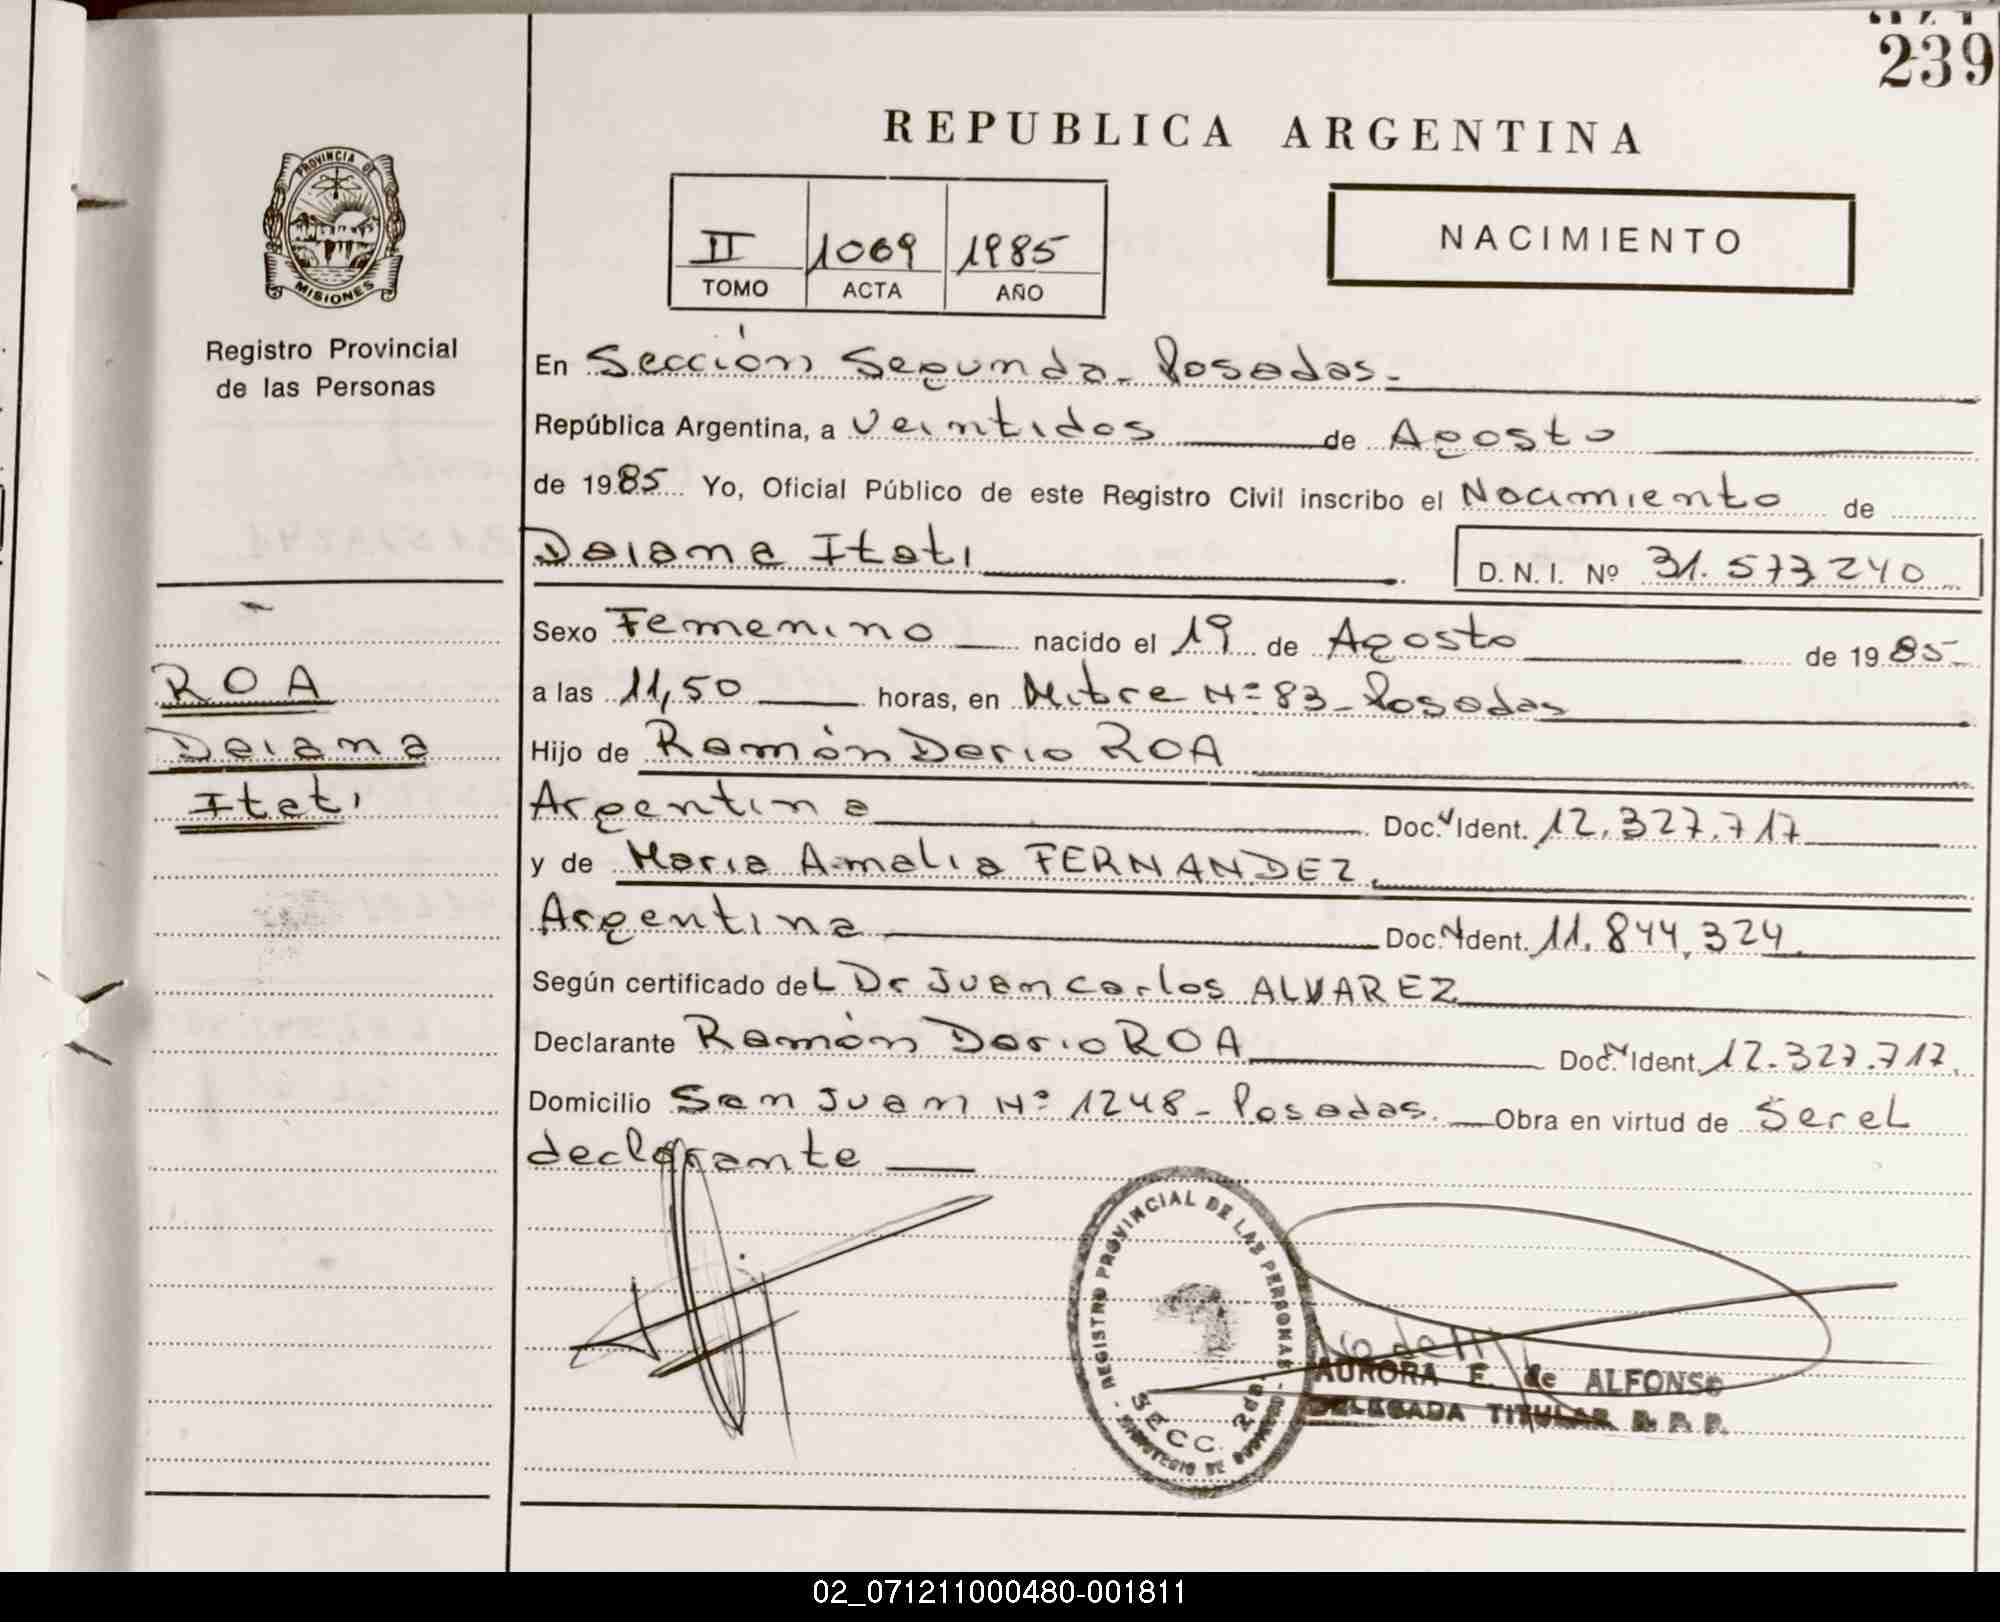 239
REPUBLICA ARGENTINA
PROVINCIA DE
MISIONES
II 1069 1985
TOMO ACTA AÑO
NACIMIENTO
Registro Provincial
de las Personas
En Sección Segunda - Posadas -
República Argentina, a Veintidos de Agosto
de 1985 Yo, Oficial Público de este Registro Civil inscribo el Nacimiento de
Daiana Itati D. N. I. Nº 31.573.240
Sexo Femenino nacido el 19 de Agosto de 1985
ROA
a las 11,50 horas, en Mitre Nº 83 - Posadas
Daiana
Hijo de Ramón Dario ROA
Itati
Argentina Doc. N Ident. 12.327.717
y de Maria Amalia FERNANDEZ.
Argentina Doc. N Ident. 11.844.324
Según certificado deL Dr Juan Carlos ALVAREZ
Declarante Ramón Dario ROA Doc. N Ident. 12.327.717.
Domicilio San Juan Nº 1248 - Posadas. Obra en virtud de Ser eL
declarante
REGISTRO PROVINCIAL DE LAS PERSONAS
SECC. 2da.
MINISTERIO DE GOBIERNO
AURORA E. de ALFONSO
DELEGADA TITULAR R. P. P.
02_071211000480-001811